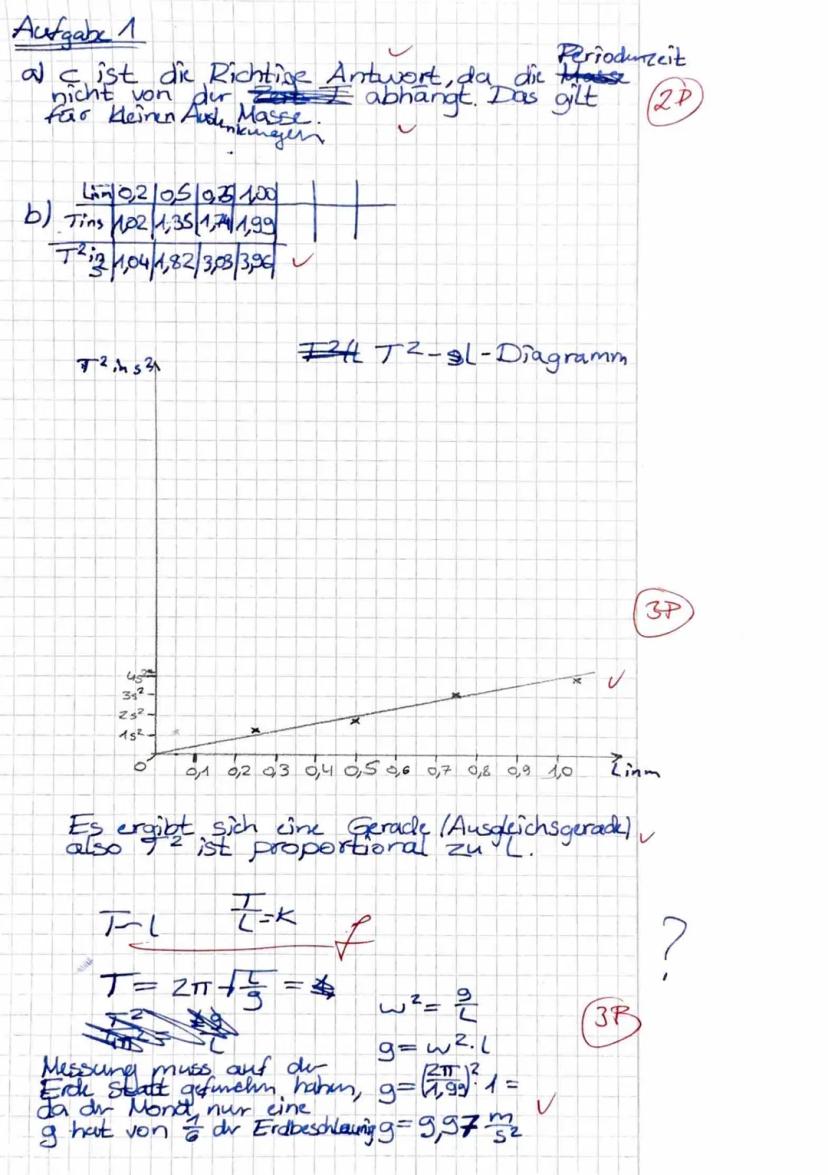 Aufgabe 1
Periodenzeit
a) c ist die Richtige Antwort, da die
nicht von der abhängt. Das gilt
für kleinen Auslenkungen Masse.
2P
L in m 0,2 0,5 0,75 1,00
b) T in s 1,02 1,35 1,74 1,99
T² in s 1,04 1,82 3,03 3,96
T² - L - Diagramm
T² in s²
3P
4s²
3s²
2s²
1s²
0 0,1 0,2 0,3 0,4 0,5 0,6 0,7 0,8 0,9 1,0 L in m
Es ergibt sich eine Gerade (Ausgleichsgerade)
also T² ist proportional zu L.
T~L T/L = K f
?
T = 2π √(L/g) =
ω² = g/L
3P
g = ω² · L
Messung muss auf der
Erde statt gefunden haben, g = (2π/1,99)² · 1 =
da der Mond nur eine
g hat von 1/6 der Erdbeschleunig g = 9,97 m/s²